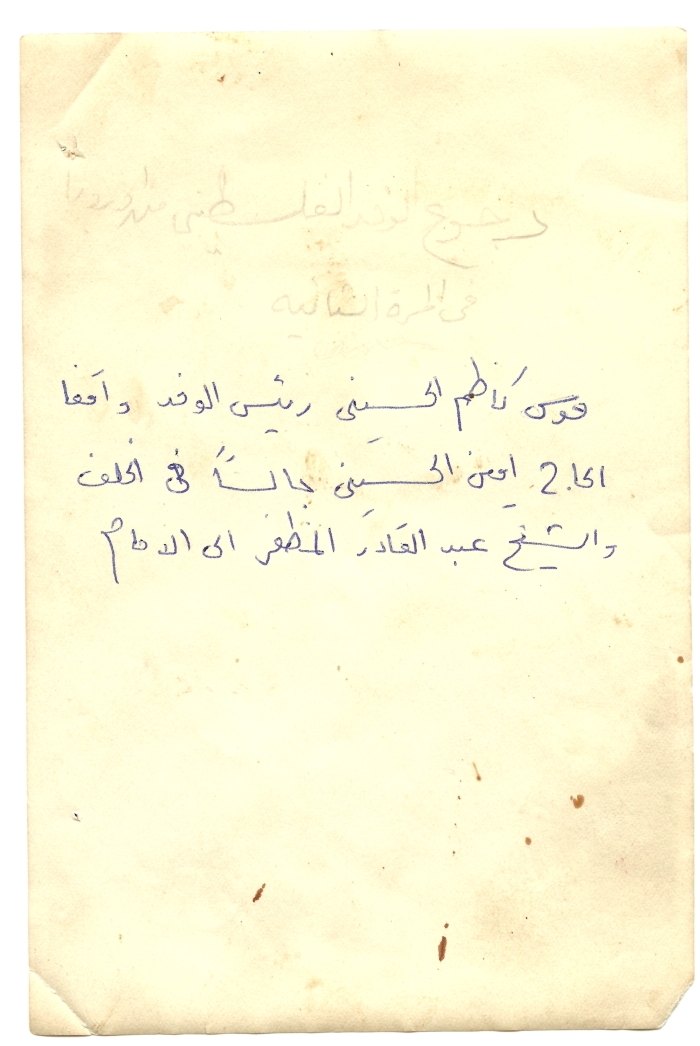 رجوع الوفد الفلسطيني من اوروبا
في المرة الثانيه
موسى كاظم الحسيني رئيس الوفد واقفا
الحاج امين الحسيني جالساً في الخلف
والشيخ عبد القادر المظفر الى الامام